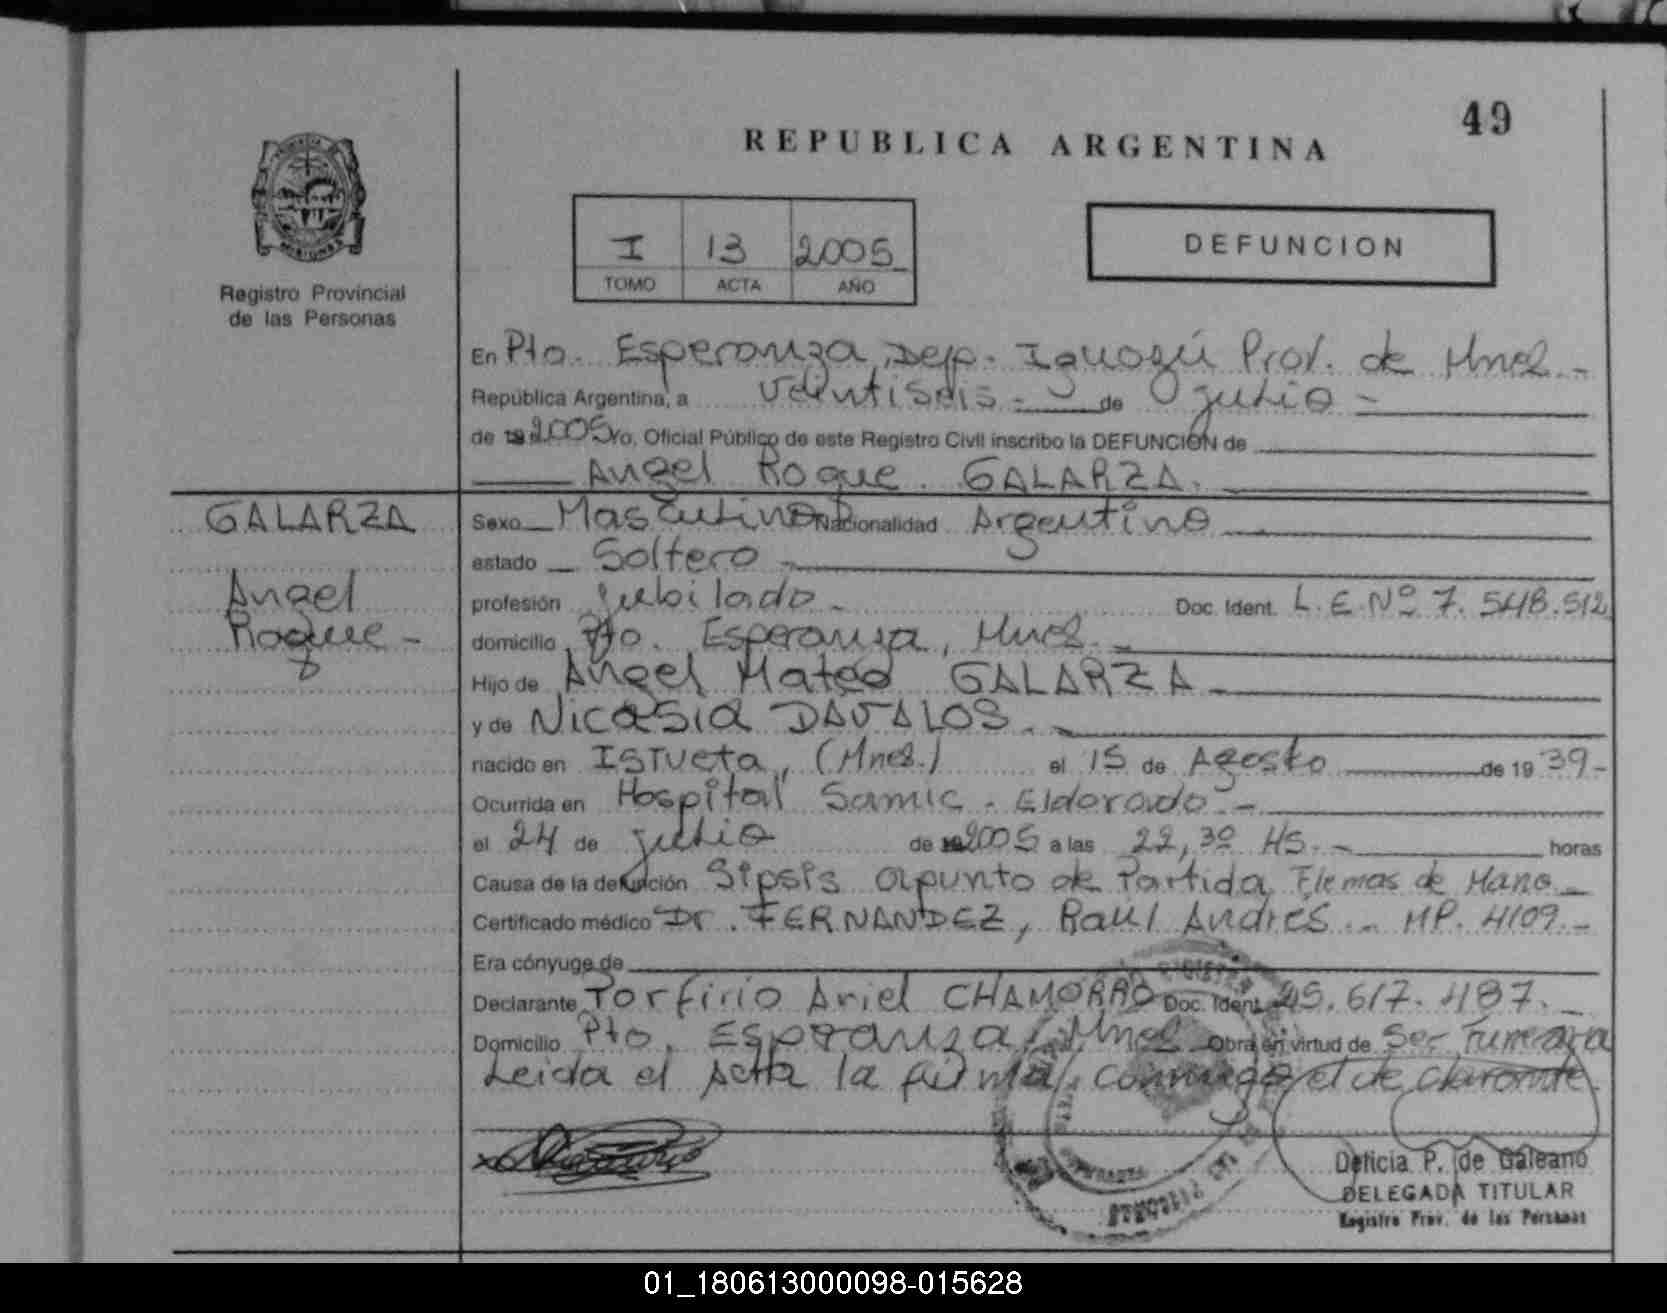 49
REPUBLICA ARGENTINA
I 13 2005
TOMO ACTA AÑO
DEFUNCION
Registro Provincial
de las Personas
En Pto. Esperanza, Dep. Iguazú Prov. de Mnes. -
República Argentina, a veintiseis - de julio -
de 2005 Yo, Oficial Público de este Registro Civil inscribo la DEFUNCION de
Angel Roque GALARZA.
GALARZA
Angel
Roque -
Sexo Masculino Nacionalidad Argentino
estado Soltero -
profesión Jubilado - Doc. Ident. L.E.Nº 7.548.512
domicilio Pto. Esperanza, Mnes. -
Hijo de Angel Mateo GALARZA -
y de Nicasia DAVALOS -
nacido en Istueta, (Mnes.) el 15 de Agosto de 19 39 -
Ocurrida en Hospital Samic - Eldorado -
el 24 de julio de 2005 a las 22,30 HS. - horas
Causa de la defunción Sipsis apunto de Partida, Flemas de Mano -
Certificado médico Dr. FERNANDEZ, Raul Andrés - MP. 4109 -
Era cónyuge de
Declarante Porfirio Ariel CHAMORRO Doc. Ident. 25.617.487. -
Domicilio Pto. Esperanza, Mnes Obra en virtud de Ser Funeraria
Leida el Acta la firma, conmigo el declarante.
Delicia P. de Galeano
DELEGADA TITULAR
Registro Prov. de las Personas
01_180613000098-015628